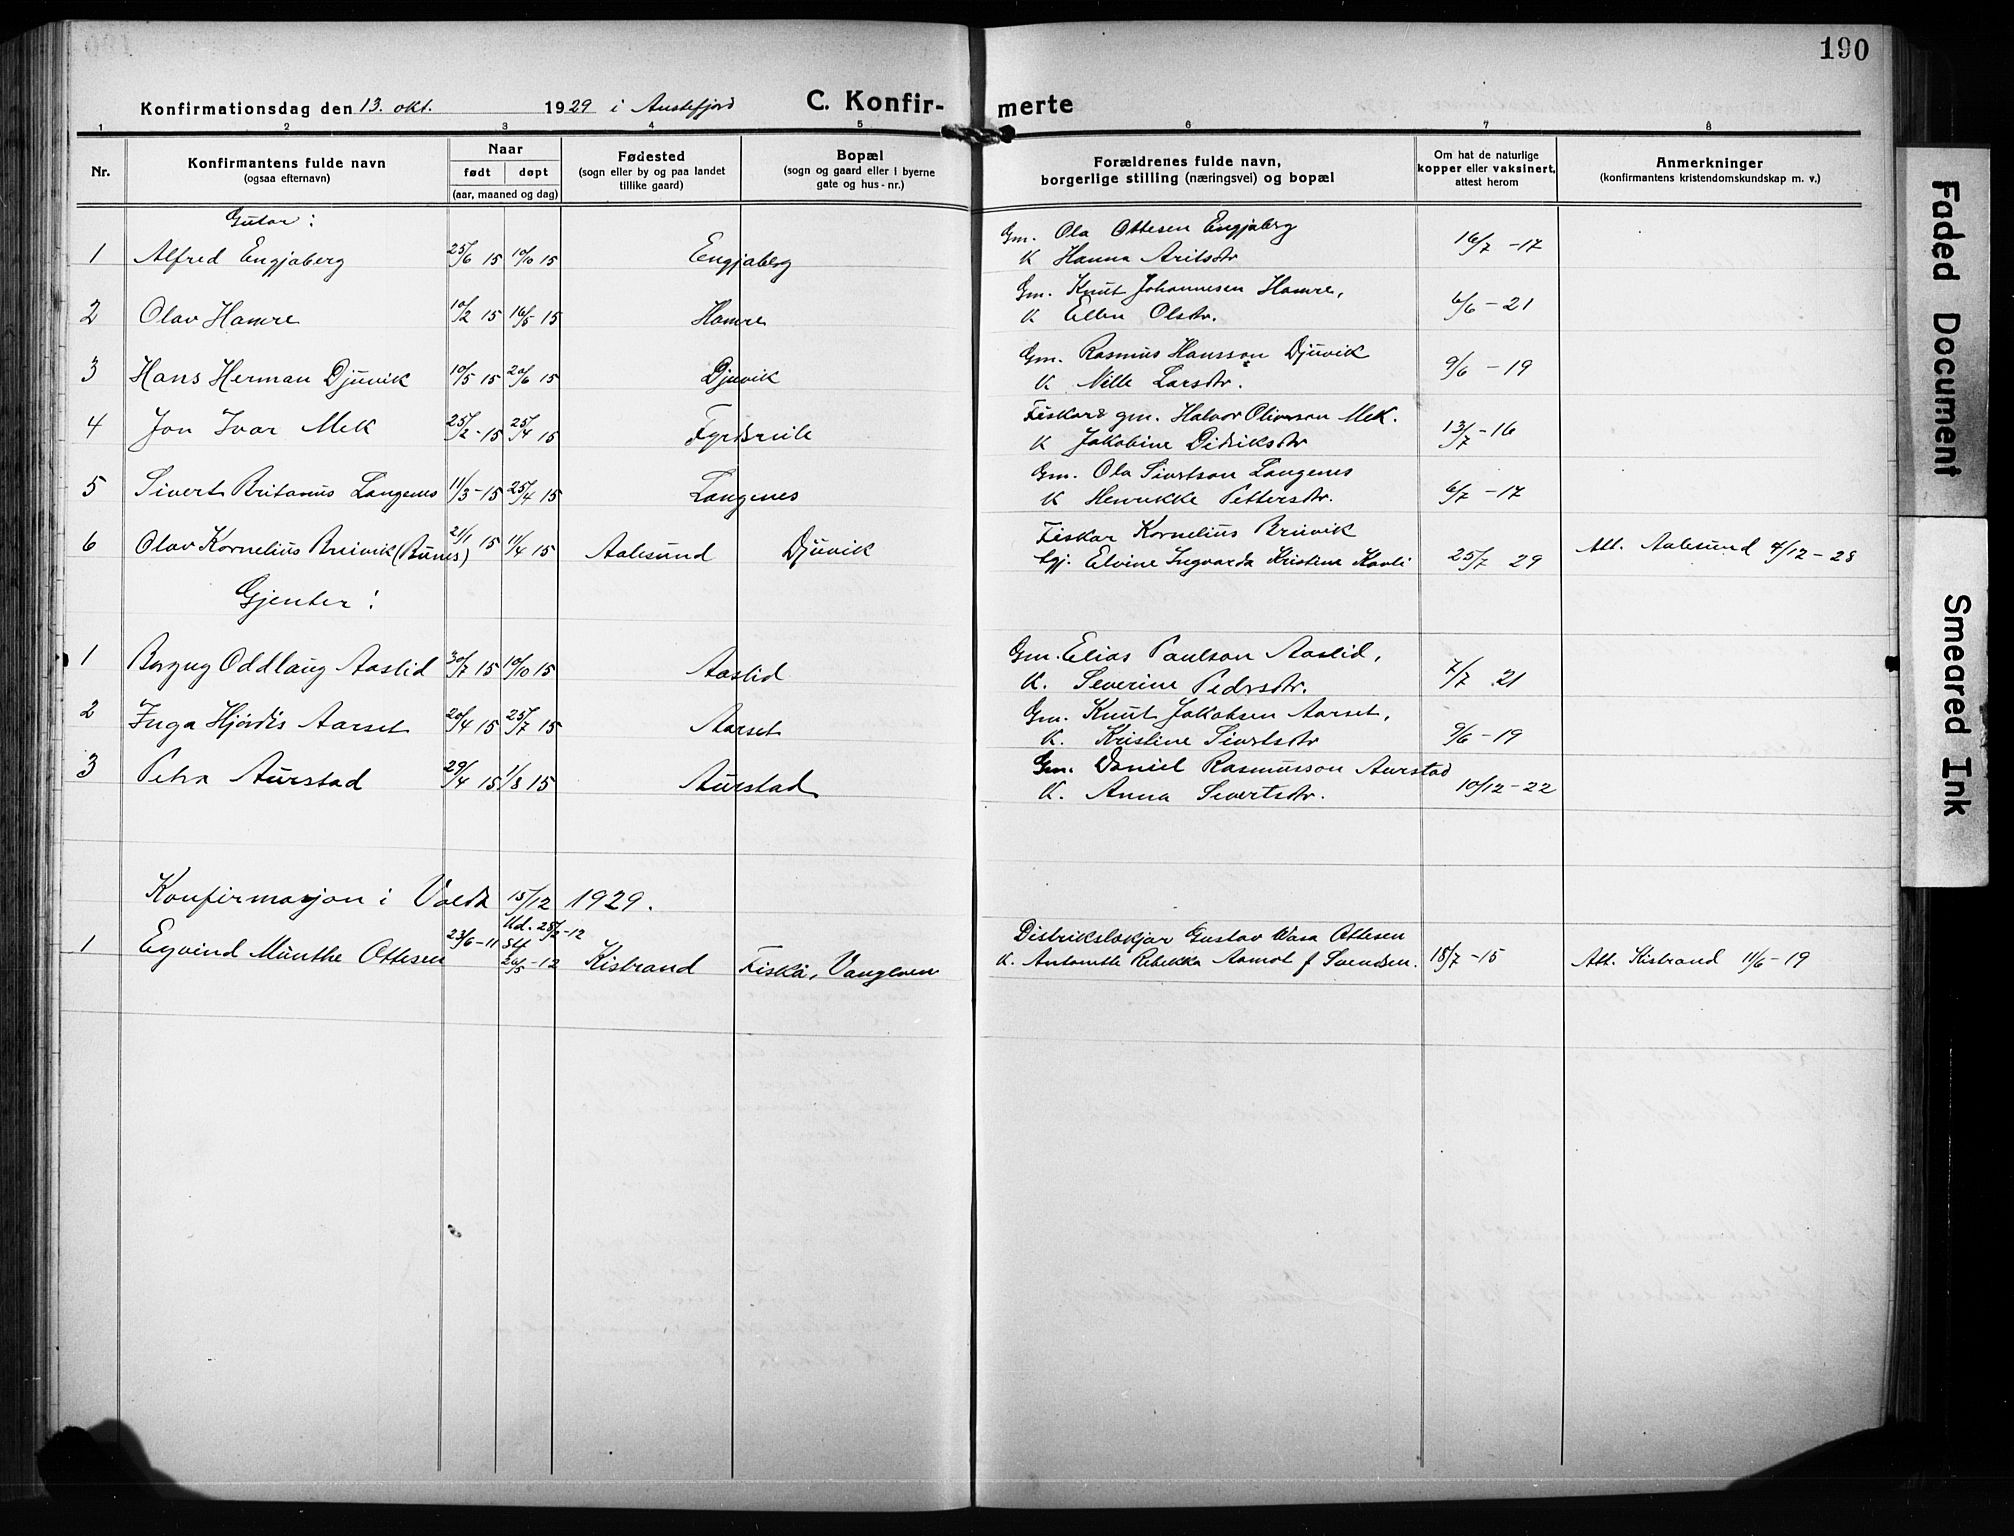 190
Konfirmationsdag den 13. okt. 1929 i Austefjord C. Konfir- merte
1 2 3 4 5 6 7 8
Nr. Konfirmantens fulde navn (ogsaa efternavn) Naar født døpt (aar, maaned og dag) Fødested (sogn eller by og paa landet tillike gaard) Bopæl (sogn og gaard eller i byerne gate og hus-nr.) Forældrenes fulde navn, borgerlige stilling (næringsvei) og bopæl Om hat de naturlige kopper eller vaksinert, attest herom Anmerkninger (konfirmantens kristendomskundskap m. v.)
Gutar:
1 Alfred Engjaberg 25/6 15 10/10 15 Engjaberg Gm. Ola Ottesen Engjaberg 16/7 -17
K Hanna Aritsdtr
2 Olav Hamre 10/2 15 16/5 15 Hamre Gm. Knut Johannesen Hamre, 6/6 - 21
K Ellen Olsdtr.
3 Hans Herman Djuvik 10/5 15 20/6 15 Djuvik Gm. Rasmus Hansson Djuvik 9/6 - 19
K Nille Larsdtr.
4 Jon Ivar Mek 25/2 - 15 25/4 15 Fiskar gm. Halvor Oliverson Mek. 13/7 - 16
K Jakobine Didriksdtr
5 Sivert Britanus Langenes 11/3 - 15 25/4 15 Langenes Gm. Ola Sivertson Langenes 6/7 - 17
K Henrikke Pettersdtr.
6 Olav Kornelius Breivik (Bunes) 21/1 15 11/4 15 Aalesund Djuvik Fiskar Kornelius Breivik 25/7 29 Att. Aalesund 4/12 - 28
Elvine Ingvarda Kristina Kavli
Gjenter:
1 Borgny Oddlaug Aaslid 30/7 15 10/10 15 Aaslid Gm. Elias Paulson Aaslid, 7/7 21
K. Severine Pedersdtr.
2 Inga Hjørdis Aarset 20/4 15 25/7 15 Aarset Gm. Knut Jakobsen Aarset, 9/6 - 19
K. Kristine Sivertsdtr
3 Petra Aurstad 29/4 15 1/8 15 Aurstad Gm. Daniel Rasmusson Aurstad 10/12 - 22
K. Anna Sivertsdtr.
Konfirmasjon i Volda 15/12 1929.
1 Eyvind Munthe Ottesen 23/6 - 11 Ud. 25/2 - 12 Stf 26/5 - 12 Kistrand Fiskå, Vanylven Distrikslækjar Gustav Wasa Ottesen 18/7 - 15 Att. Kistrand 11/6 - 19
K. Antonette Rebekka Aamot f Svendsen.
Faded Document
Smeared Ink